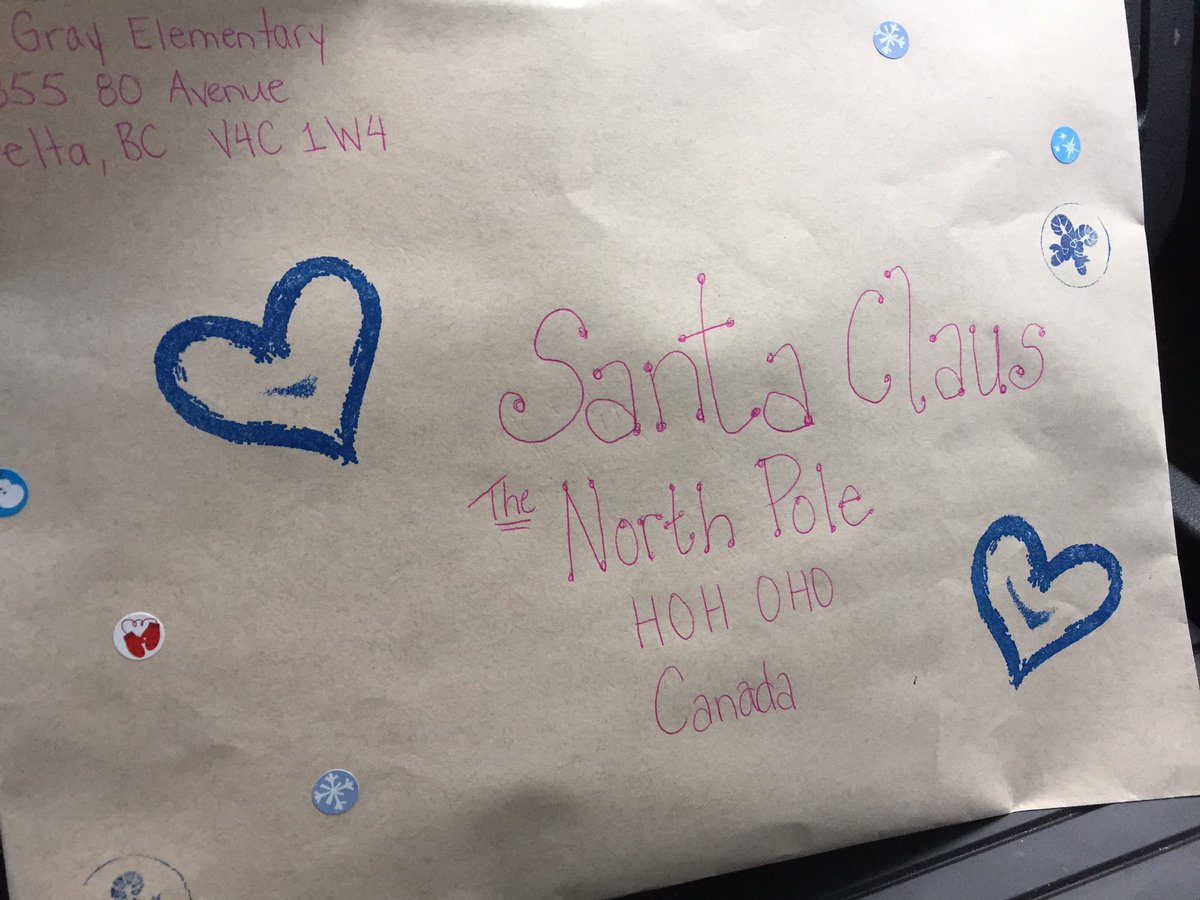 Gray Elementary
355 80 Avenue
elta, BC V4C 1W4
Santa Claus
The North Pole
HOH OHO
Canada